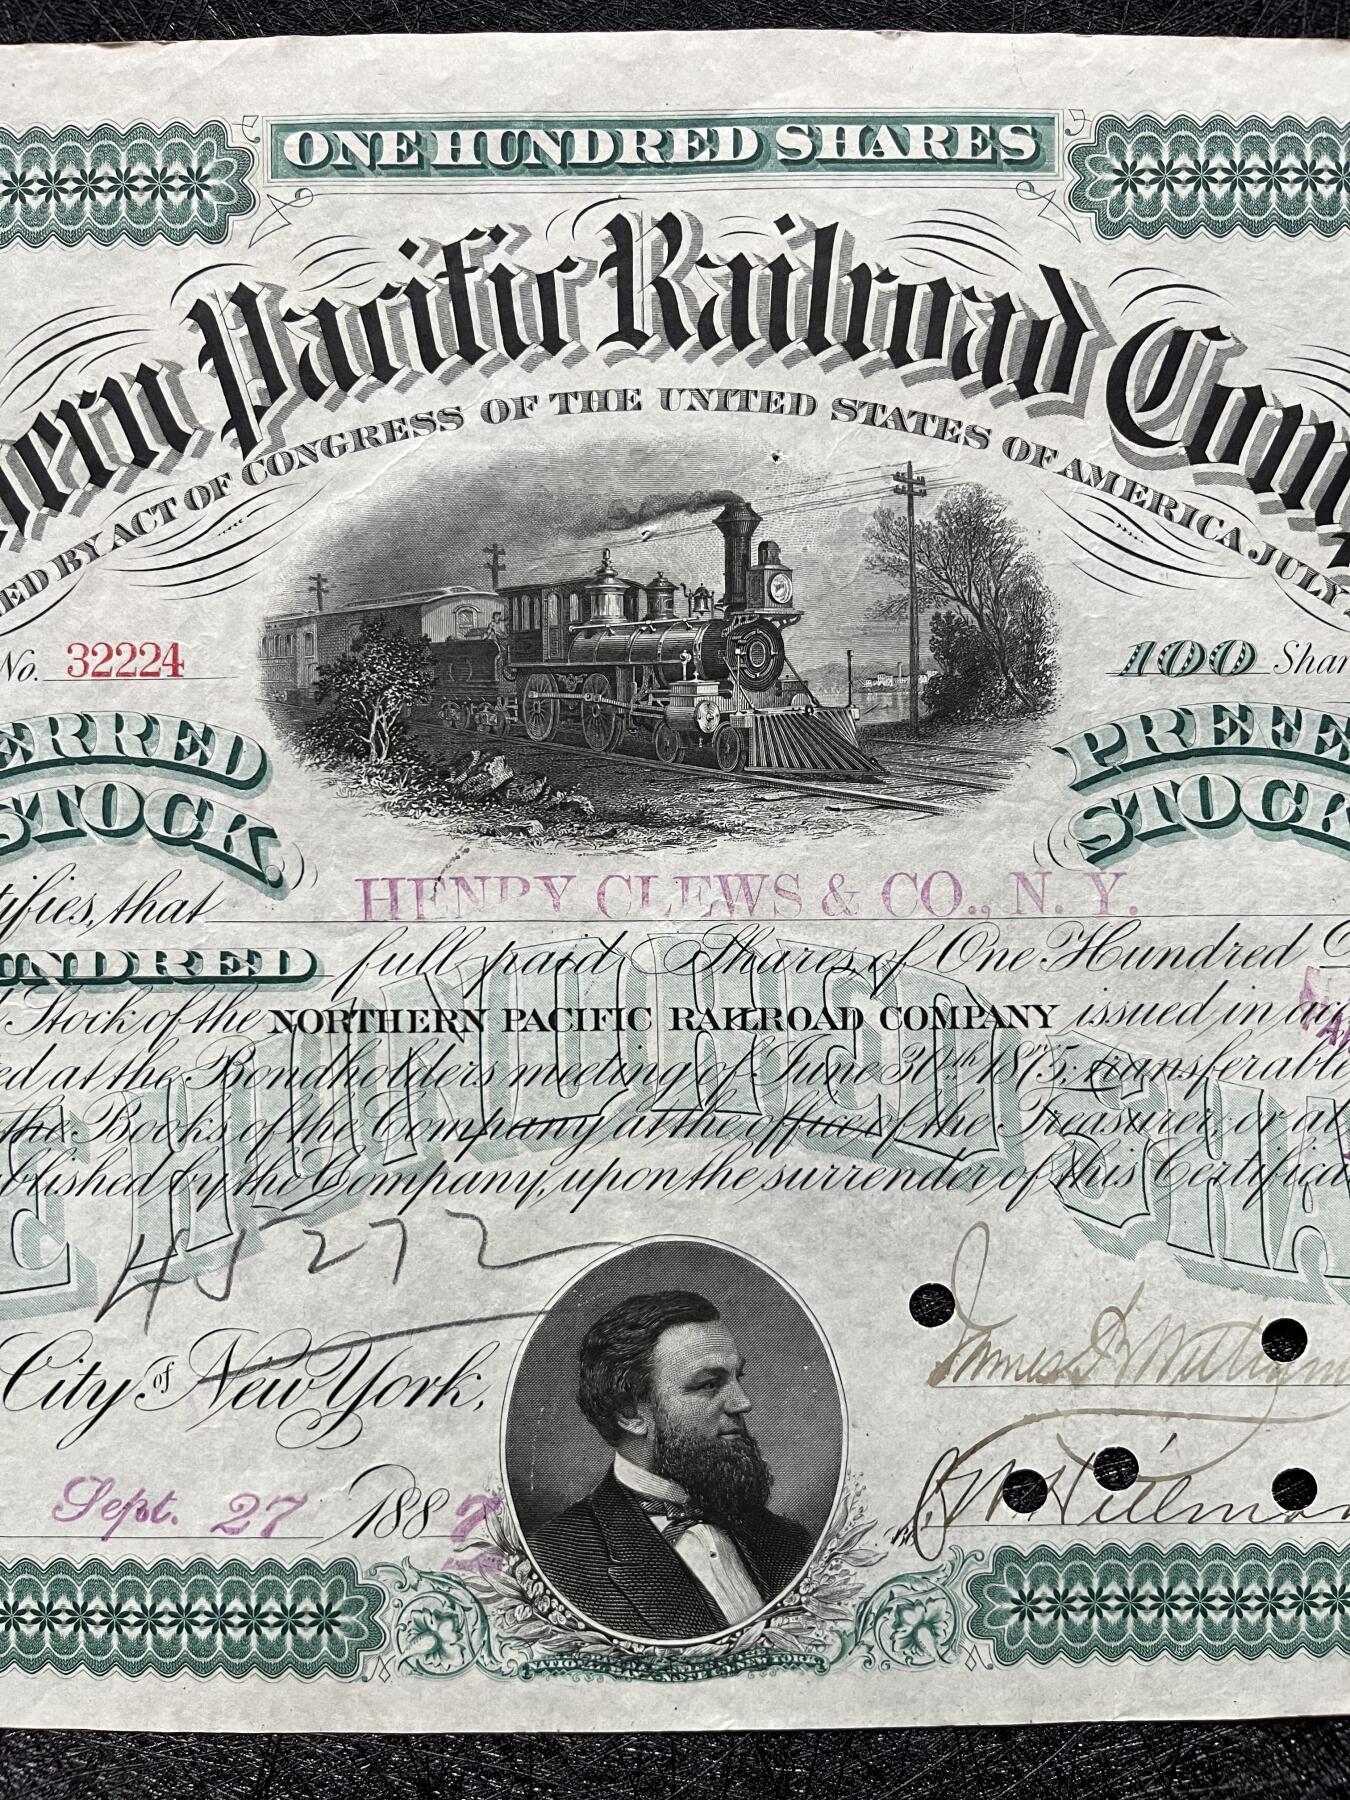 ONE HUNDRED SHARES
hern Pacific Railroad Comp
ED BY ACT OF CONGRESS OF THE UNITED STATES OF AMERICA JULY
No. 32224
100 Shar
ERRED STOCK.
PREFE STOCK
tifies, that HENRY CLEWS & CO., N. Y.
UNDRED full paid Shares of One Hundred D
Stock of the NORTHERN PACIFIC RAILROAD COMPANY issued in acc
ed at the Bondholders meeting of June 30th 1875, transferable
the Books of the Company at the office of the Treasurer, or at
blished by the Company, upon the surrender of this Certifica
E HUNDRED SHA
45272
City of New York,
Sept. 27 1887